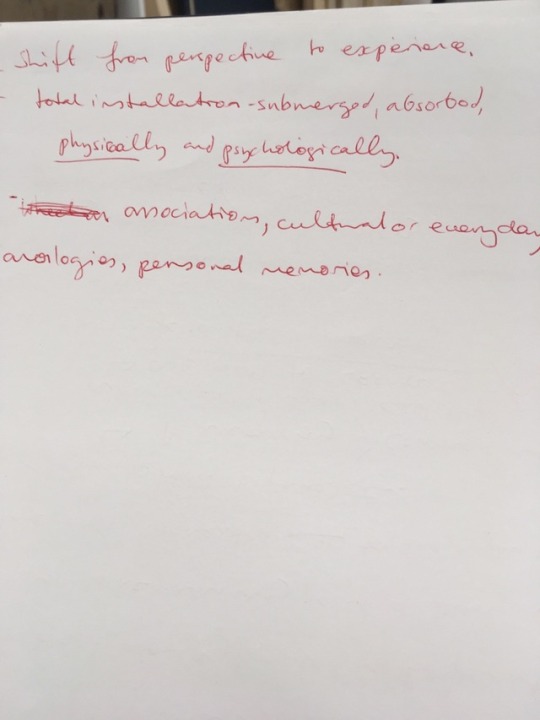 - Shift from perspective to experience.
- total installation - submerged, absorbed,
physically and psychologically.
- associations, cultural or everyday
analogies, personal memories.